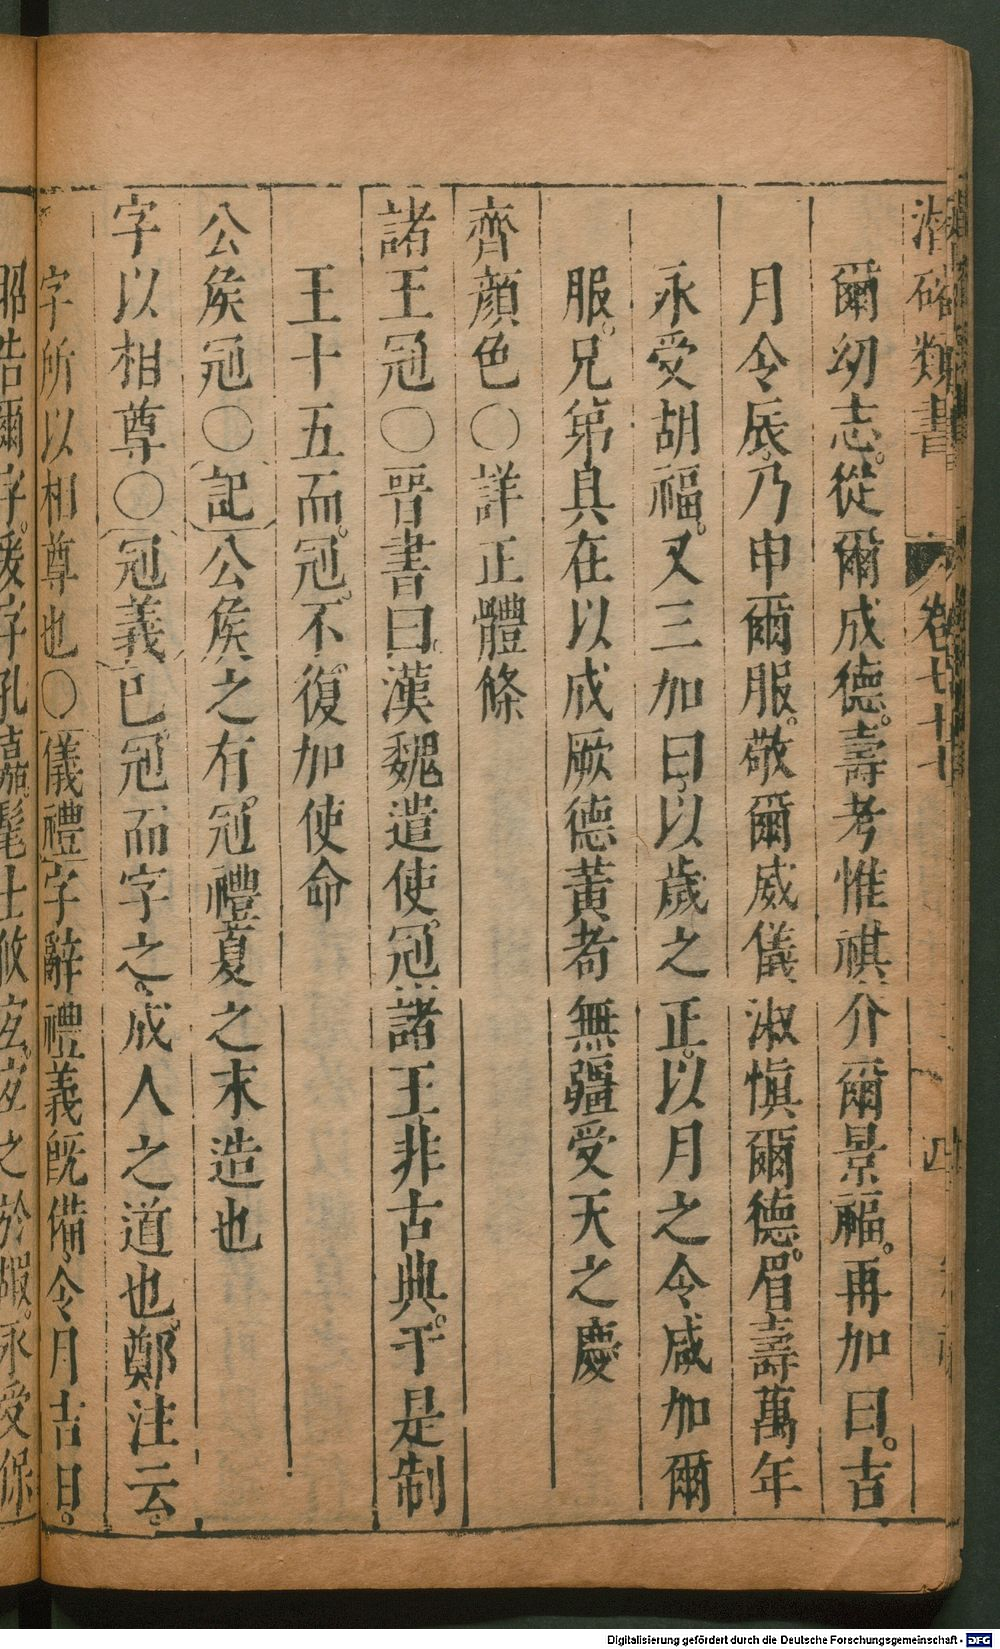 潛確類書 卷七十七 四
爾幼志。從爾成德。壽考惟祺介爾景福。再加曰。吉
月令辰。乃申爾服。敬爾威儀淑慎爾德。眉壽萬年
永受胡福。又三加曰。以歲之正。以月之令咸加爾
服。兄弟具在以成厥德黃耇無疆受天之慶
齊顏色〇詳正體條
諸王冠〇晉書曰漢魏遣使。冠諸王非古典。于是制
王十五而。冠。不。復加使命
公矦冠〇記公矦之有。冠禮夏之末造也
字以相尊〇冠義已冠而字之。成人之道也。鄭注云。
字所以相尊也〇儀禮字辭禮義既備。令月吉日。
昭告爾字。爰字孔嘉。髦士攸宜。宜之於嘏。永受保
Digitalisierung gefördert durch die Deutsche Forschungsgemeinschaft - DFG